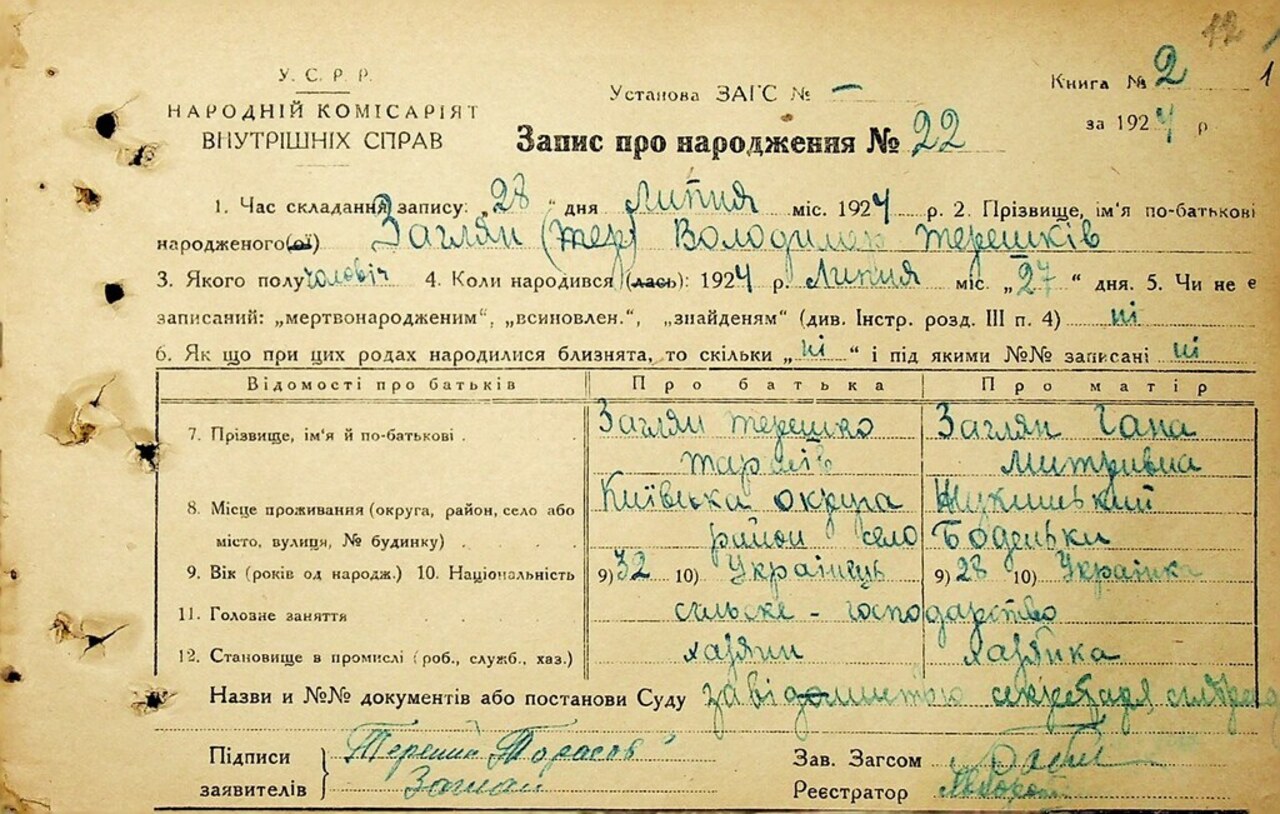 12
1
У. С. Р. Р.
НАРОДНІЙ КОМІСАРІЯТ
ВНУТРІШНІХ СПРАВ
Установа ЗАГС № —
Книга № 2
за 1924 р
Запис про народження № 22
1. Час складання запису: „28“ дня Липня міс. 1924 р. 2. Прізвище, ім'я по-батькові
народженого(ої) Заглян (тер) Володимер Терешків
3. Якого полу чоловіч 4. Коли народився (лась): 1924 р. Липня міс. „27“ дня. 5. Чи не є
записаний: „мертвонародженим“, „всиновлен.“, „знайденям“ (див. Інстр. розд. III п. 4) ні
6. Як що при цих родах народилися близнята, то скільки „ні“ і під якими №№ записані ні
Відомості про батьків Про батька Про матір
7. Прізвище, ім'я й по-батькові . . Заглян Терешко Заглян Гана
Тарасів Митривна
8. Місце проживання (округа, район, село або Київська округа Жукинський
місто, вулиця, № будинку) . . . . район село Боденьки
9. Вік (років од народж.) 10. Національність 9) 32 10) Українець 9) 28 10) Українка
11. Головне заняття сільське - господарство
12. Становище в промислі (роб., служб., хаз.) хазяин хазяйка
Назви и №№ документів або постанови Суду секретаря
Підписи Тарасов
заявителів Заглян
Зав. Загсом
Реєстратор